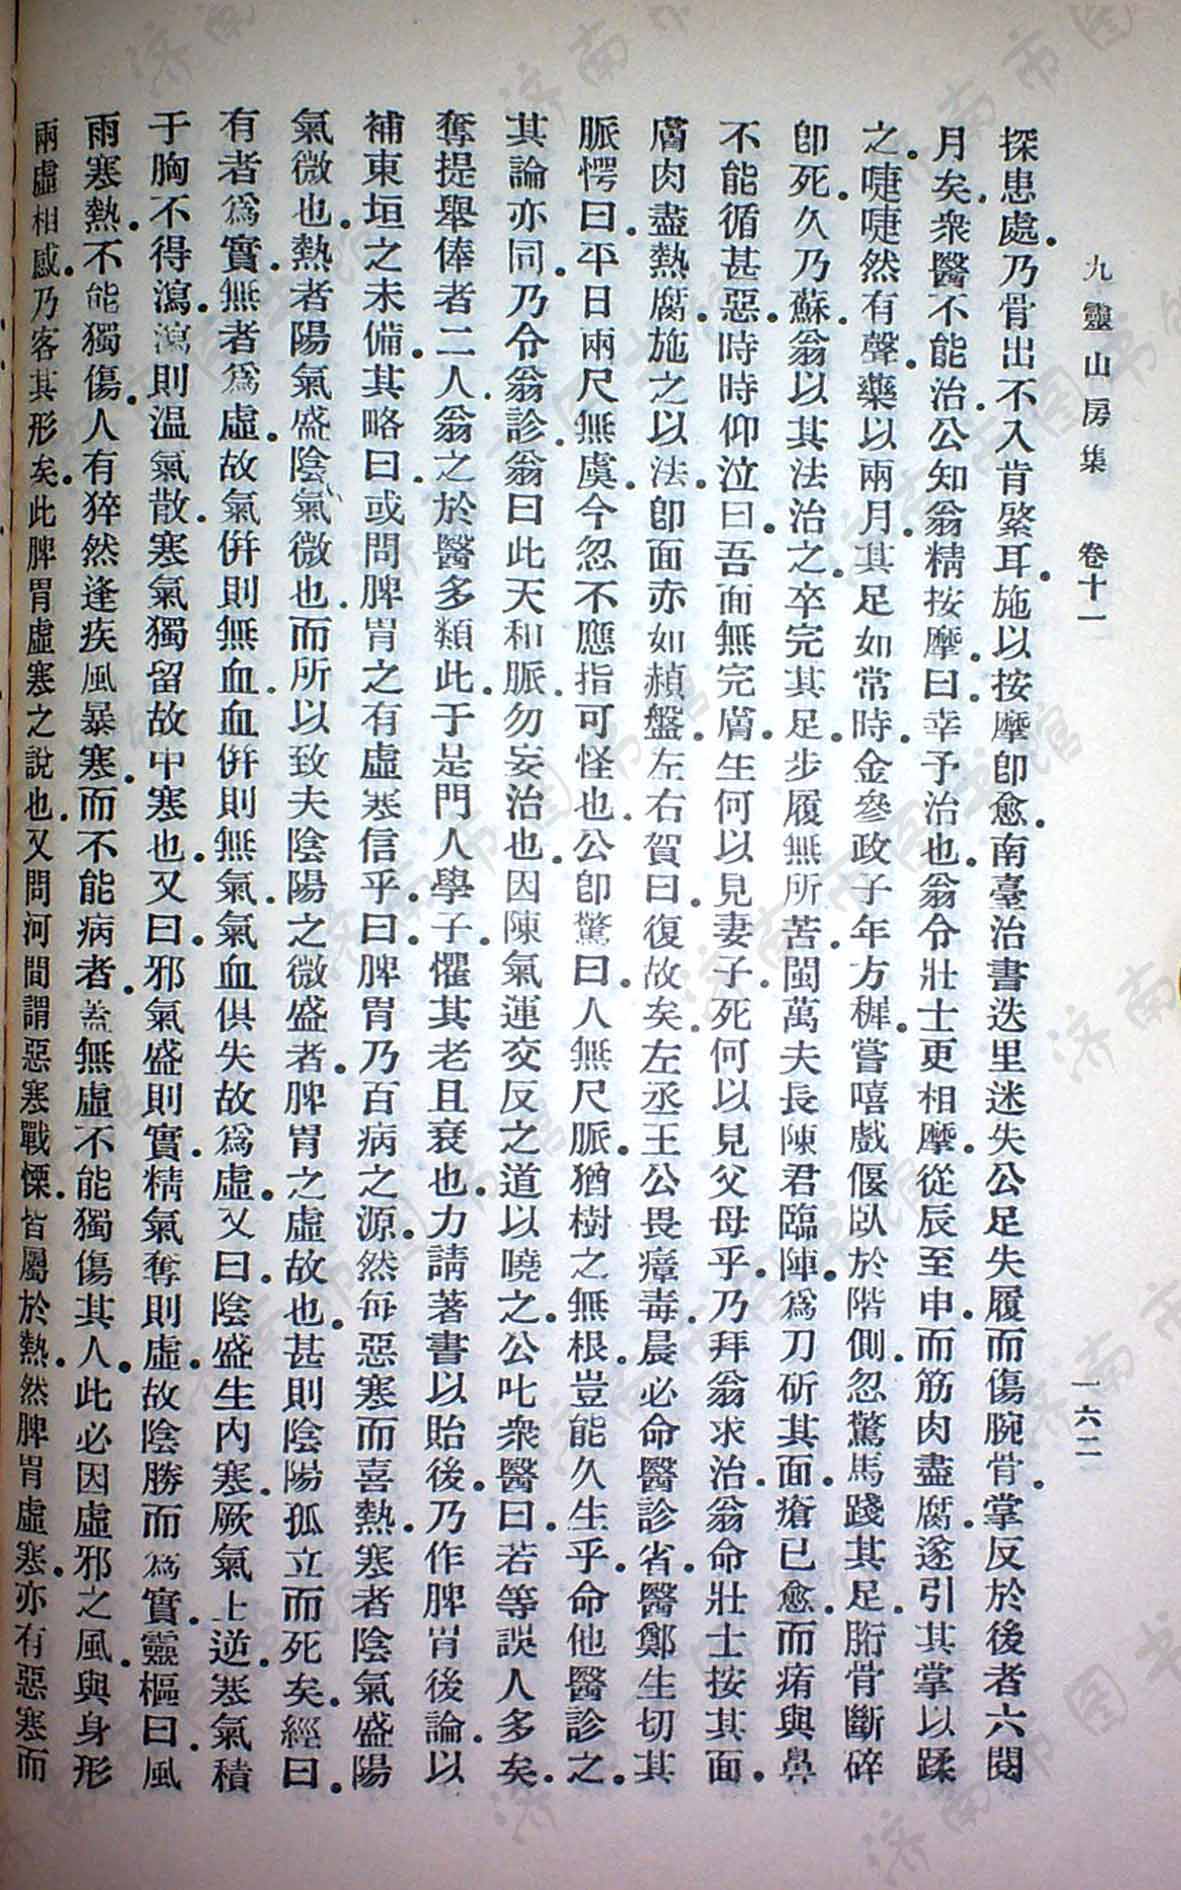 九靈山房集　卷十一　一六二
探患處。乃骨出不入肯綮耳。施以按摩卽愈。南臺治書迭里迷失公足失履而傷腕骨。掌反於後者六閱
月矣。衆醫不能治。公知翁精按摩。曰。幸予治也。翁令壯士更相摩。從辰至申。而筋肉盡腐。遂引其掌以蹂
之。㗫㗫然有聲。藥以兩月。其足如常時。金參政子年方穉。嘗嘻戲偃臥於階側。忽驚馬踐其足。胻骨斷碎
卽死。久乃蘇。翁以其法治之。卒完其足。步履無所苦。閩萬夫長陳君臨陣。爲刀斫其面。瘡已愈。而痏與鼻
不能循甚惡。時時仰泣曰。吾面無完膚。生何以見妻子。死何以見父母乎。乃拜翁求治。翁命壯士按其面。
膚肉盡熱腐。施之以法。卽面亦如赬盤。左右賀曰。復故矣。左丞王公畏瘴毒。晨必命醫診省。醫鄭生切其
脈。愕曰。平日兩尺無虞。今忽不應指。可怪也。公卽驚曰。人無尺脈。猶樹之無根。豈能久生乎。命他醫診之。
其論亦同。乃令翁診。翁曰此天和脈。勿妄治也。因陳氣運交反之道以曉之。公叱衆醫曰。若等誤人多矣。
奪提舉俸者二人。翁之於醫多類此。于是門人學子。懼其老且衰也。力請著書以貽後。乃作脾胃後論。以
補東垣之未備。其略曰。或問脾胃之有虛寒信乎。曰。脾胃乃百病之源。然每惡寒而喜熱。寒者陰氣盛陽
氣微也。熱者陽氣盛陰氣微也。而所以致夫陰陽之微盛者。脾胃之虛故也。甚則陰陽孤立而死矣。經曰。
有者爲實。無者爲虛。故氣倂則無血。血倂則無氣。氣血俱失故爲虛。又曰。陰盛生內寒。厥氣上逆。寒氣積
于胸不得瀉。瀉則温氣散。寒氣獨留故中寒也。又曰。邪氣盛則實。精氣奪則虛。故陰勝而爲實。靈樞曰。風
雨寒熱。不能獨傷。人有猝然逢疾風暴寒。而不能病者。蓋無虛不能獨傷其人。此必因虛邪之風。與身形
兩虛相感。乃客其形矣。此脾胃虛寒之說也。又問河間謂惡寒戰慄。皆屬於熱。然脾胃虛寒。亦有惡寒而